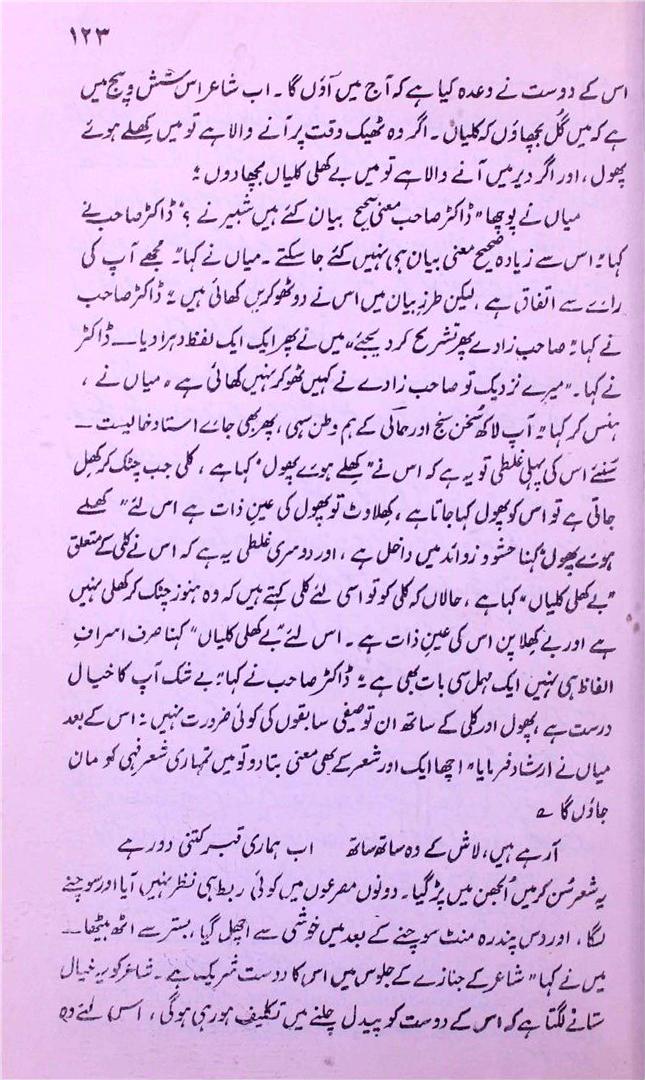 ۱۲۳
اس کے دوست نے وعدہ کیا ہے کہ آج میں آؤں گا۔ اب شاعر اس شش و پنج میں
ہے کہ میں گُل بچھاؤں کہ کلیاں۔ اگر وہ ٹھیک وقت پر آنے والا ہے تو میں کھلے ہوئے
پھول، اور اگر دیر میں آنے والا ہے تو میں بے کھلی کلیاں بچھا دوں؛
میاں نے پوچھا "ڈاکٹر صاحب معنی صحیح بیان کئے ہیں شبیر نے؟" ڈاکٹر صاحب نے
کہا "اس سے زیادہ صحیح معنی بیان ہی نہیں کئے جا سکتے۔ میاں نے کہا" مجھے آپ کی
رائے سے اتفاق ہے، لیکن طرزِ بیان میں اس نے دو ٹھوکریں کھائی ہیں" ڈاکٹر صاحب
نے کہا "صاحب زادے پھر تشریح کر دیجئے" میں نے پھر ایک ایک لفظ دہرا دیا — ڈاکٹر
نے کہا۔ "میرے نزدیک تو صاحب زادے نے کہیں ٹھوکر نہیں کھائی ہے، میاں نے،
ہنس کر کہا "آپ لاکھ سُخن سنج اور حالی کے ہم وطن سہی، پھر بھی جائے استاد خالیست —
سُنئے اس کی پہلی غلطی تو یہ ہے کہ اس نے "کھلے ہوئے پھول" کہا ہے، کلی جب چٹک کر کھِل
جاتی ہے تو اس کو پھول کہا جاتا ہے، کھِلاوٹ تو پھول کی عین ذات ہے اس لئے "کھلے
ہوئے پھول" کہنا حشو و زوائد میں داخل ہے، اور دوسری غلطی یہ ہے کہ اس نے کلی کے متعلق
"بے کھلی کلیاں" کہا ہے، حالاں کہ کلی کو تو اسی لئے کلی کہتے ہیں کہ وہ ہنوز چٹک کر کھلی نہیں
ہے اور بے کھلا پن اس کی عینِ ذات ہے۔ اس لئے "بے کھلی کلیاں" کہنا صرف اسرافِ
الفاظ ہی نہیں ایک مہمل سی بات بھی ہے" ڈاکٹر صاحب نے کہا "بے شک آپ کا خیال
درست ہے، پھول اور کلی کے ساتھ ان توصیفی سابقوں کی کوئی ضرورت نہیں" اس کے بعد
میاں نے ارشاد فرمایا "اچھا ایک اور شعر کے بھی معنی بتا دو تو میں تمہاری شعر فہمی کو مان
جاؤں گا ؎
آ رہے ہیں، لاش کے وہ ساتھ ساتھ اب ہماری قبر کتنی دور ہے
یہ شعر سُن کر میں اُلجھن میں پڑ گیا۔ دونوں مصرعوں میں کوئی ربط ہی نظر نہیں آیا اور سوچنے
لگا، اور دس پندرہ منٹ سوچنے کے بعد میں خوشی سے اچھل گیا، بستر سے اٹھ بیٹھا —
میں نے کہا "شاعر کے جنازے کے جلوس میں اس کا دوست شریک ہے۔ شاعر کو یہ خیال
ستانے لگتا ہے کہ اس کے دوست کو پیدل چلنے میں تکلیف ہو رہی ہوگی، اس لئے وہ